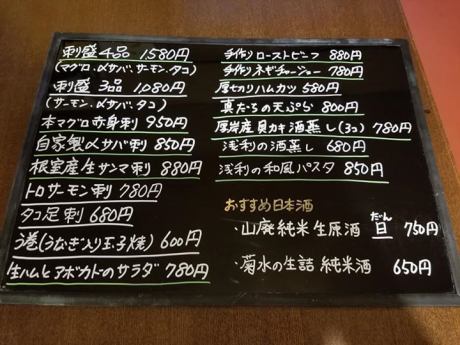 刺盛4品 1580円
(マグロ、〆サバ、サーモン、タコ)
刺盛 3品 1,080円
(サーモン、〆サバ、タコ)
本マグロ赤身刺 950円
自家製〆サバ刺 850円
根室産生サンマ刺 880円
トロサーモン刺 780円
タコ足刺 680円
う巻(うなぎ入り玉子焼) 600円
生ハムとアボカドのサラダ 780円
手作りローストビーフ 880円
手作りネギチャーシュー 780円
厚切りハムカツ 580円
真たちの天ぷら 800円
厚岸産貝カキ酒蒸し(3コ) 780円
浅利の酒蒸し 680円
浅利の和風パスタ 850円
おすすめ日本酒
・山廃純米生原酒 旦 750円
だーん
・菊水の生詰 純米酒 650円